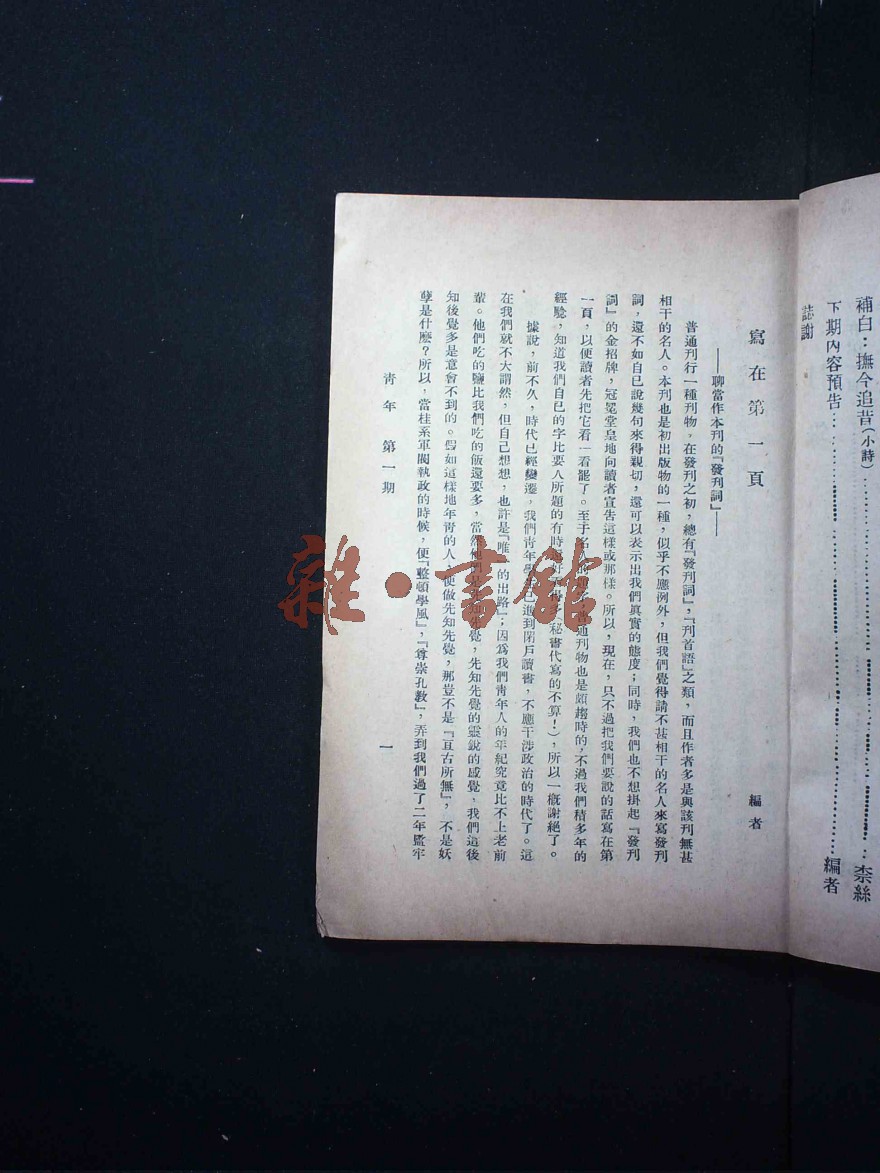 補白：撫今追昔(小詩)………………………柰絲
下期內容預告………………………編者
誌謝
寫在第一頁
編者
——聊當作本刊的『發刊詞』——
普通刊行一種刊物，在發刊之初，總有『發刊詞』，『刊首語』之類，而且作者多是與該刊無甚
相干的名人。本刊也是初出版物的一種，似乎不應例外，但我們覺得請不甚相干的名人來寫發刊
詞，還不如自己說幾句來得親切，還可以表示出我們真實的態度；同時，我們也不想掛起『發刊
詞』的金招牌，冠冕堂皇地向讀者宣告這樣或那樣。所以，現在，只不過把我們要說的話寫在第
一頁，以便讀者先把它看一看罷了。至于名人的題字，普通刊物也是頗趨時的，不過我們積多年的
經驗，知道我們自己的字比要人所題的有時還好(秘書代寫的不算！)，所以一概謝絕了。
據說，前不久，時代已經變遷，我們青年學已進到閉戶讀書，不應干涉政治的時代了。這
在我們就不大謂然，但自己想想，也許是『唯一的出路』；因爲我們青年人的年紀究竟比不上老前
輩。他們吃的鹽比我們吃的飯還要多，當然他們是先知先覺，先知先覺的靈銳的感覺，我們這後
知後覺多是意會不到的。假如這樣地年青的人便做先知先覺，那豈不是『亘古所無』，不是妖
孽是什麼？所以，當桂系軍閥執政的時候，便『整頓學風』，『尊崇孔教』，弄到我們過了二年監牢
青年　第一期
一
雜·書館